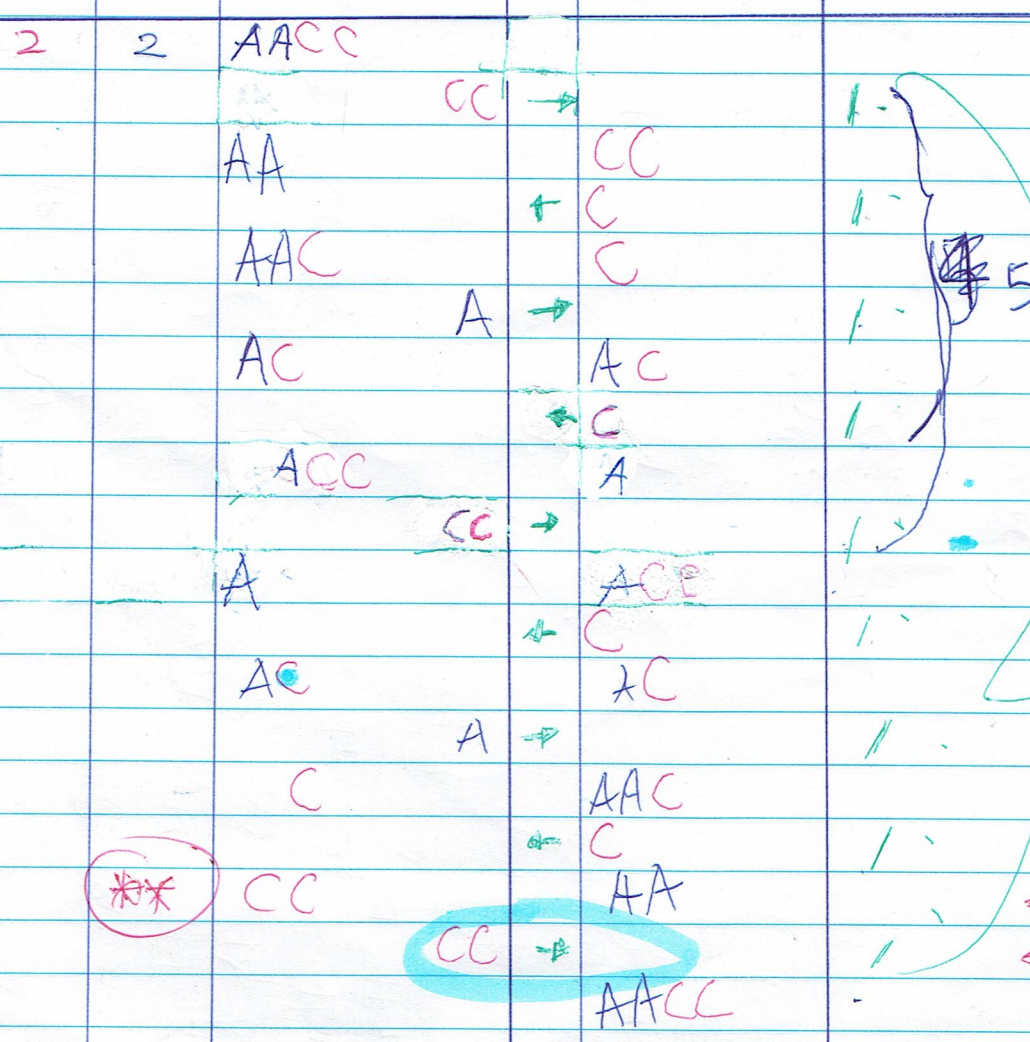 2 2 AACC
CC → 1
AA CC
← C 1
AAC C
A → 1
5
AC AC
← C 1
ACC A
CC → 1
A ACC
← C 1
AC AC
A → 1
C AAC
← C 1
** CC AA
CC → 1
AACC